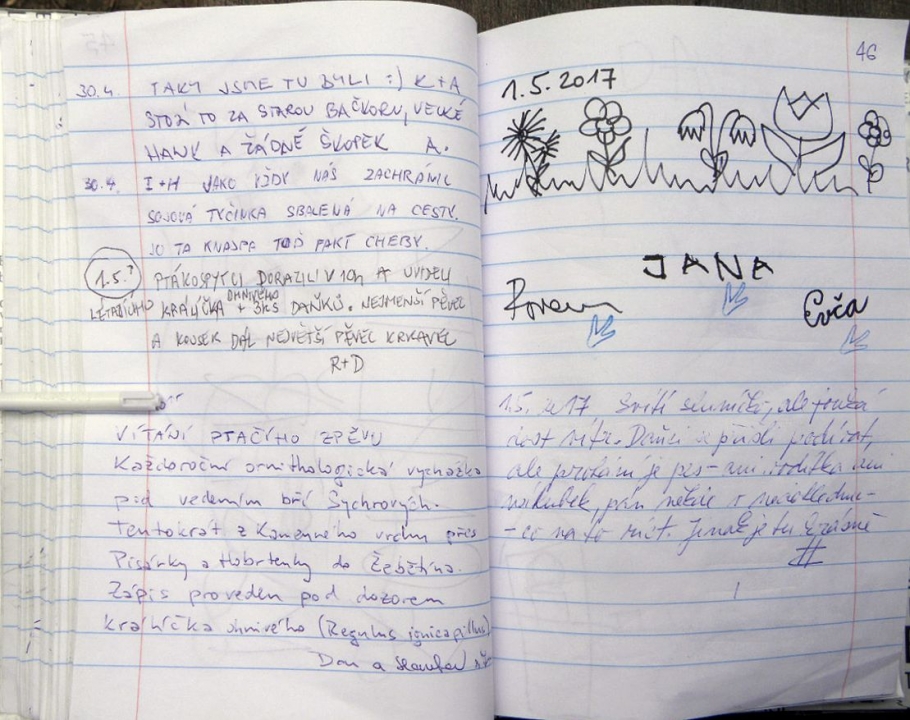 30.4. TAKY JSME TU BYLI :) K+A
STOJÍ TO ZA STAROU BAČKORU, VELKÉ
HAWK A ŽÁDNÉ ŠKOPEK A.
30.4. I+H JAKO VŽDY NÁS ZACHRÁNIL
SOJOVÁ TYČINKA SBALENÁ NA CESTY.
JO TA KNAJPA TOŤ PAKT CHEBY.
1.5.? PTÁKOSPYTCI DORAZILI V 10h A UVIDĚLI
LÉTAJÍCÍHO KRÁLÍČKA OHNIVÉHO + 3KS DAŇKŮ. NEJMENŠÍ PĚVEC
A KOUSEK DÁL NEJVĚTŠÍ PĚVEC KRKAVEC
R+D
VÍTÁNÍ PTAČÍHO ZPĚVU
Každoroční ornithologická vycházka
pod vedením bří Sychrových.
Tentokrát z Kamenného vrchu přes
Pisárky a Hobrtenky do Žebětína.
Zápis proveden pod dozorem
králíčka ohnivého (Regulus ignicapillus)
Dan a
46
1.5.2017
JANA
Evča
1.5. 2017 Svítí sluníčko, ale fouká
dost vítr. Daňci se přišli podívat,
ale protože je pes - ani
co na to říct. Jinak je tu krásně